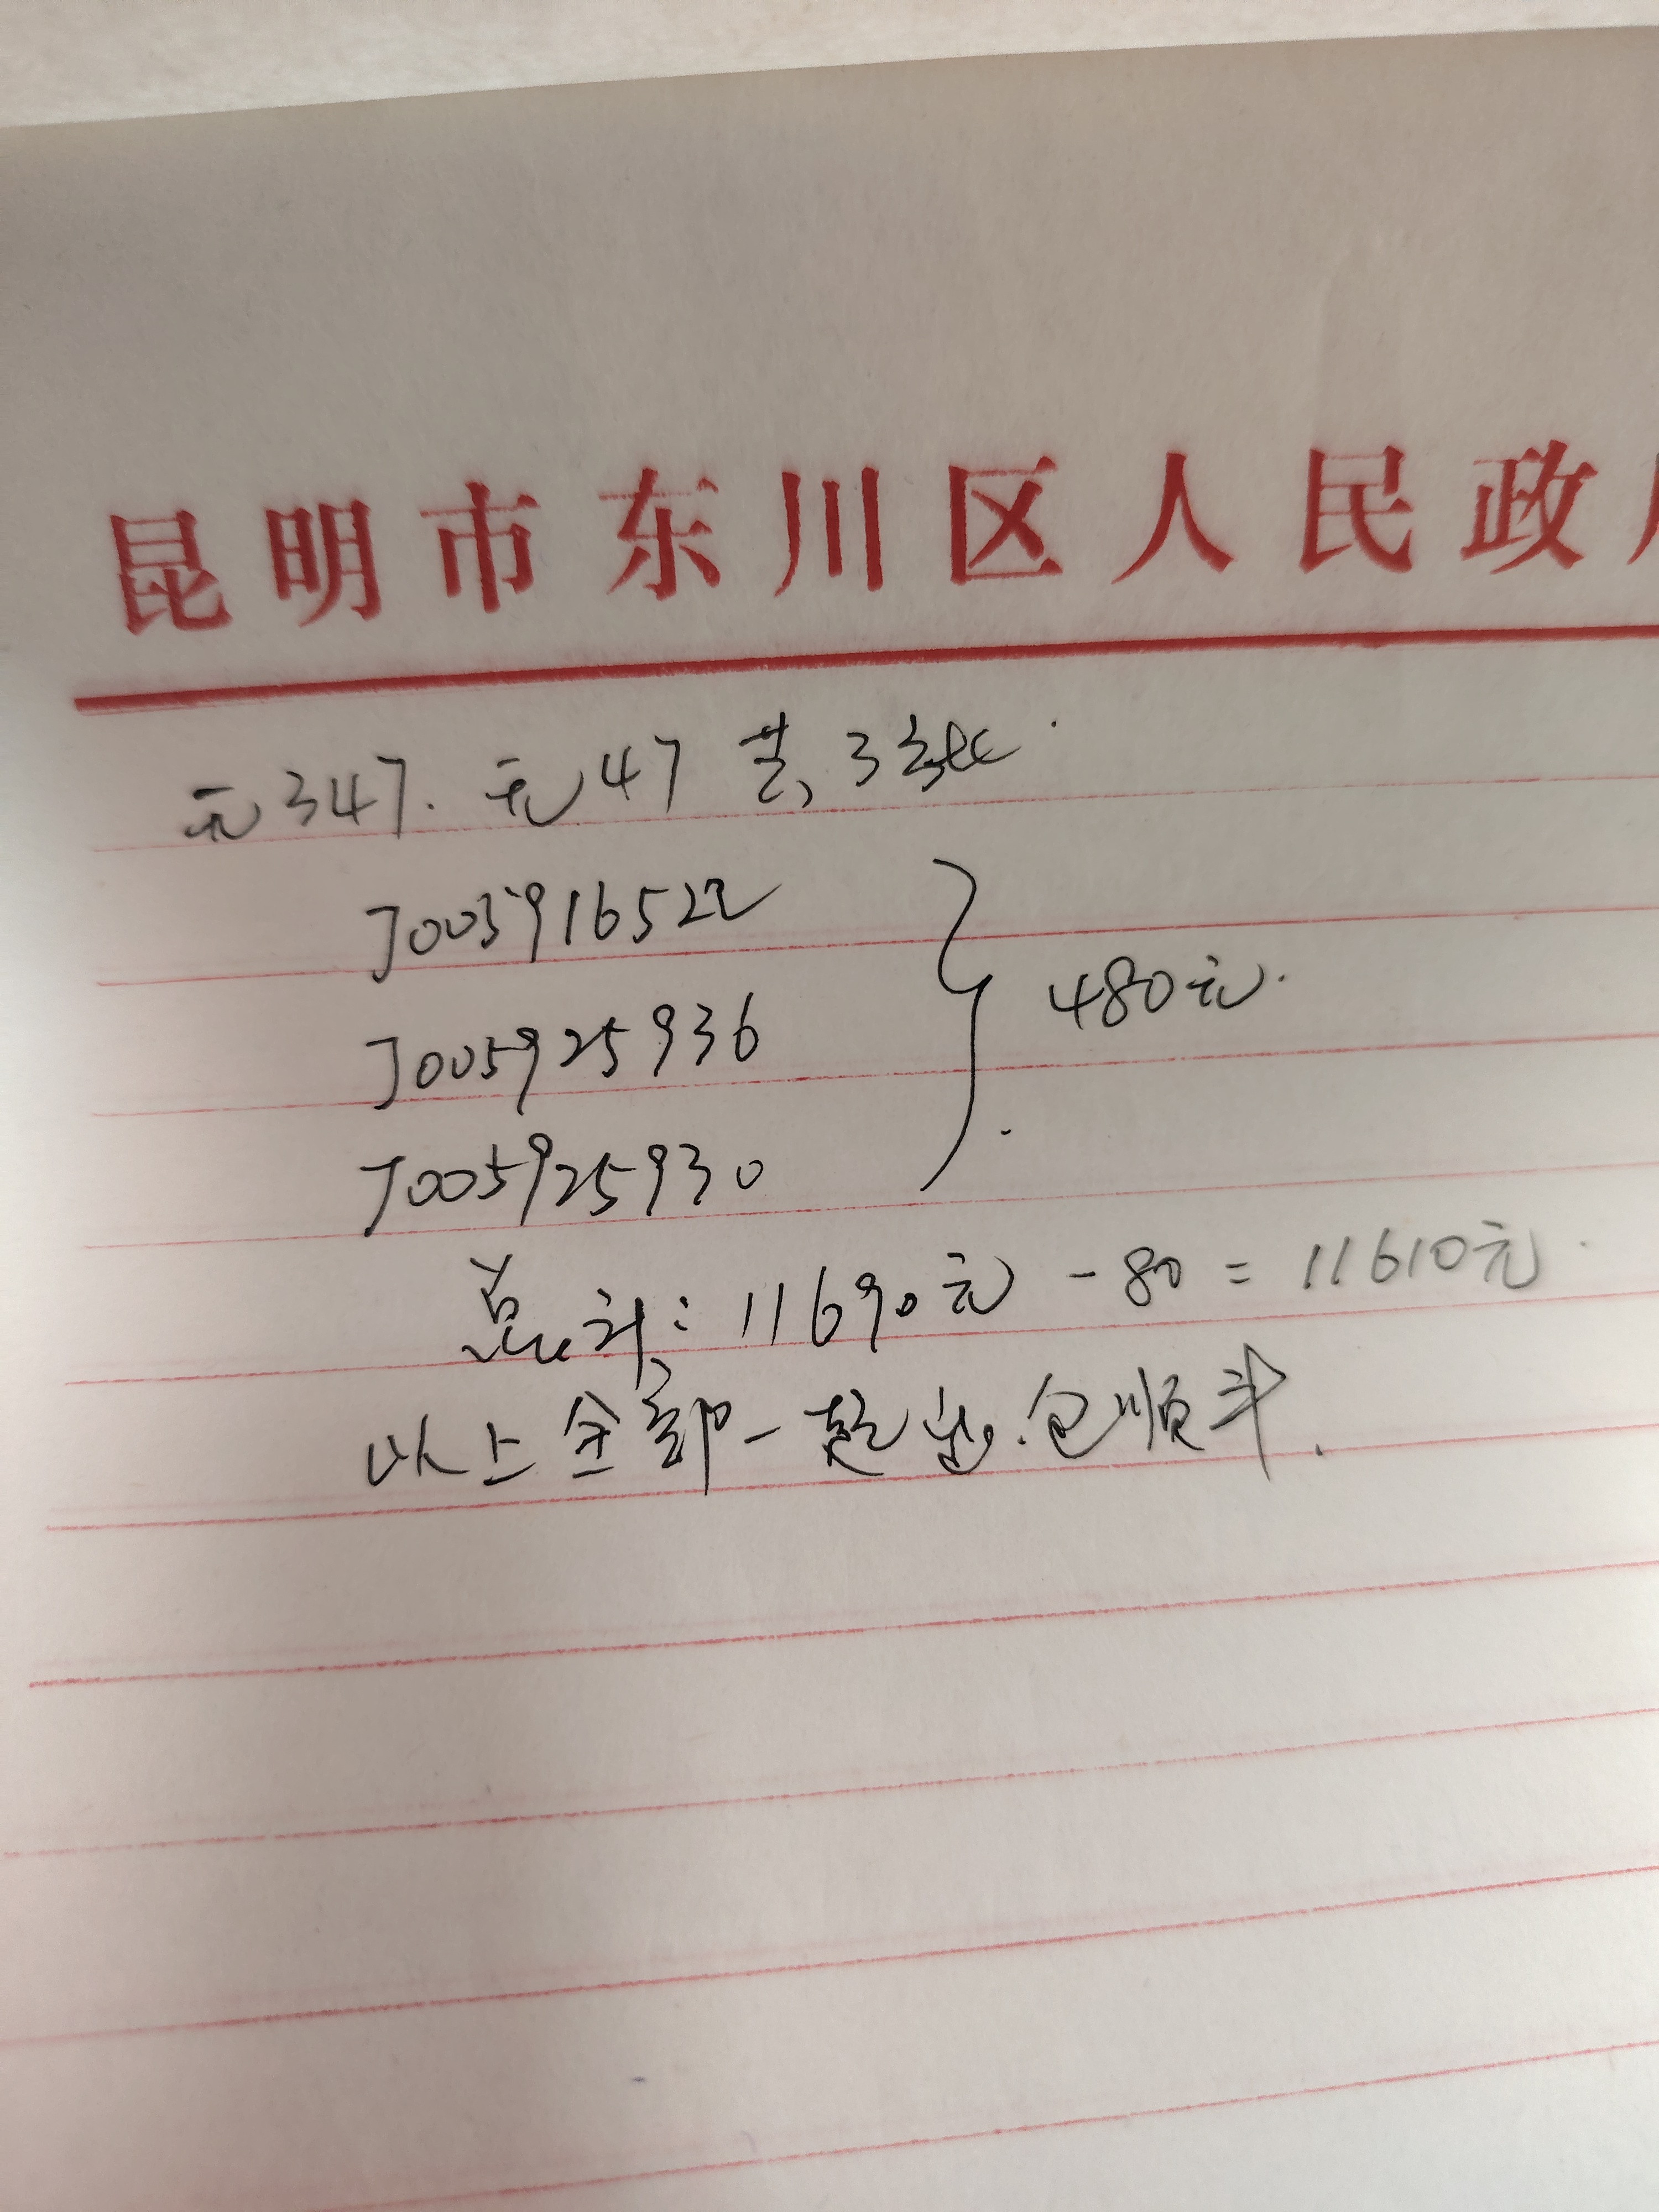 昆明市东川区人民政
无347.无47茔,3张.
J005916522
J005925936
J005925930
480元.
总计:11690元-80=11610元.
以上全部一起出.包顺丰.